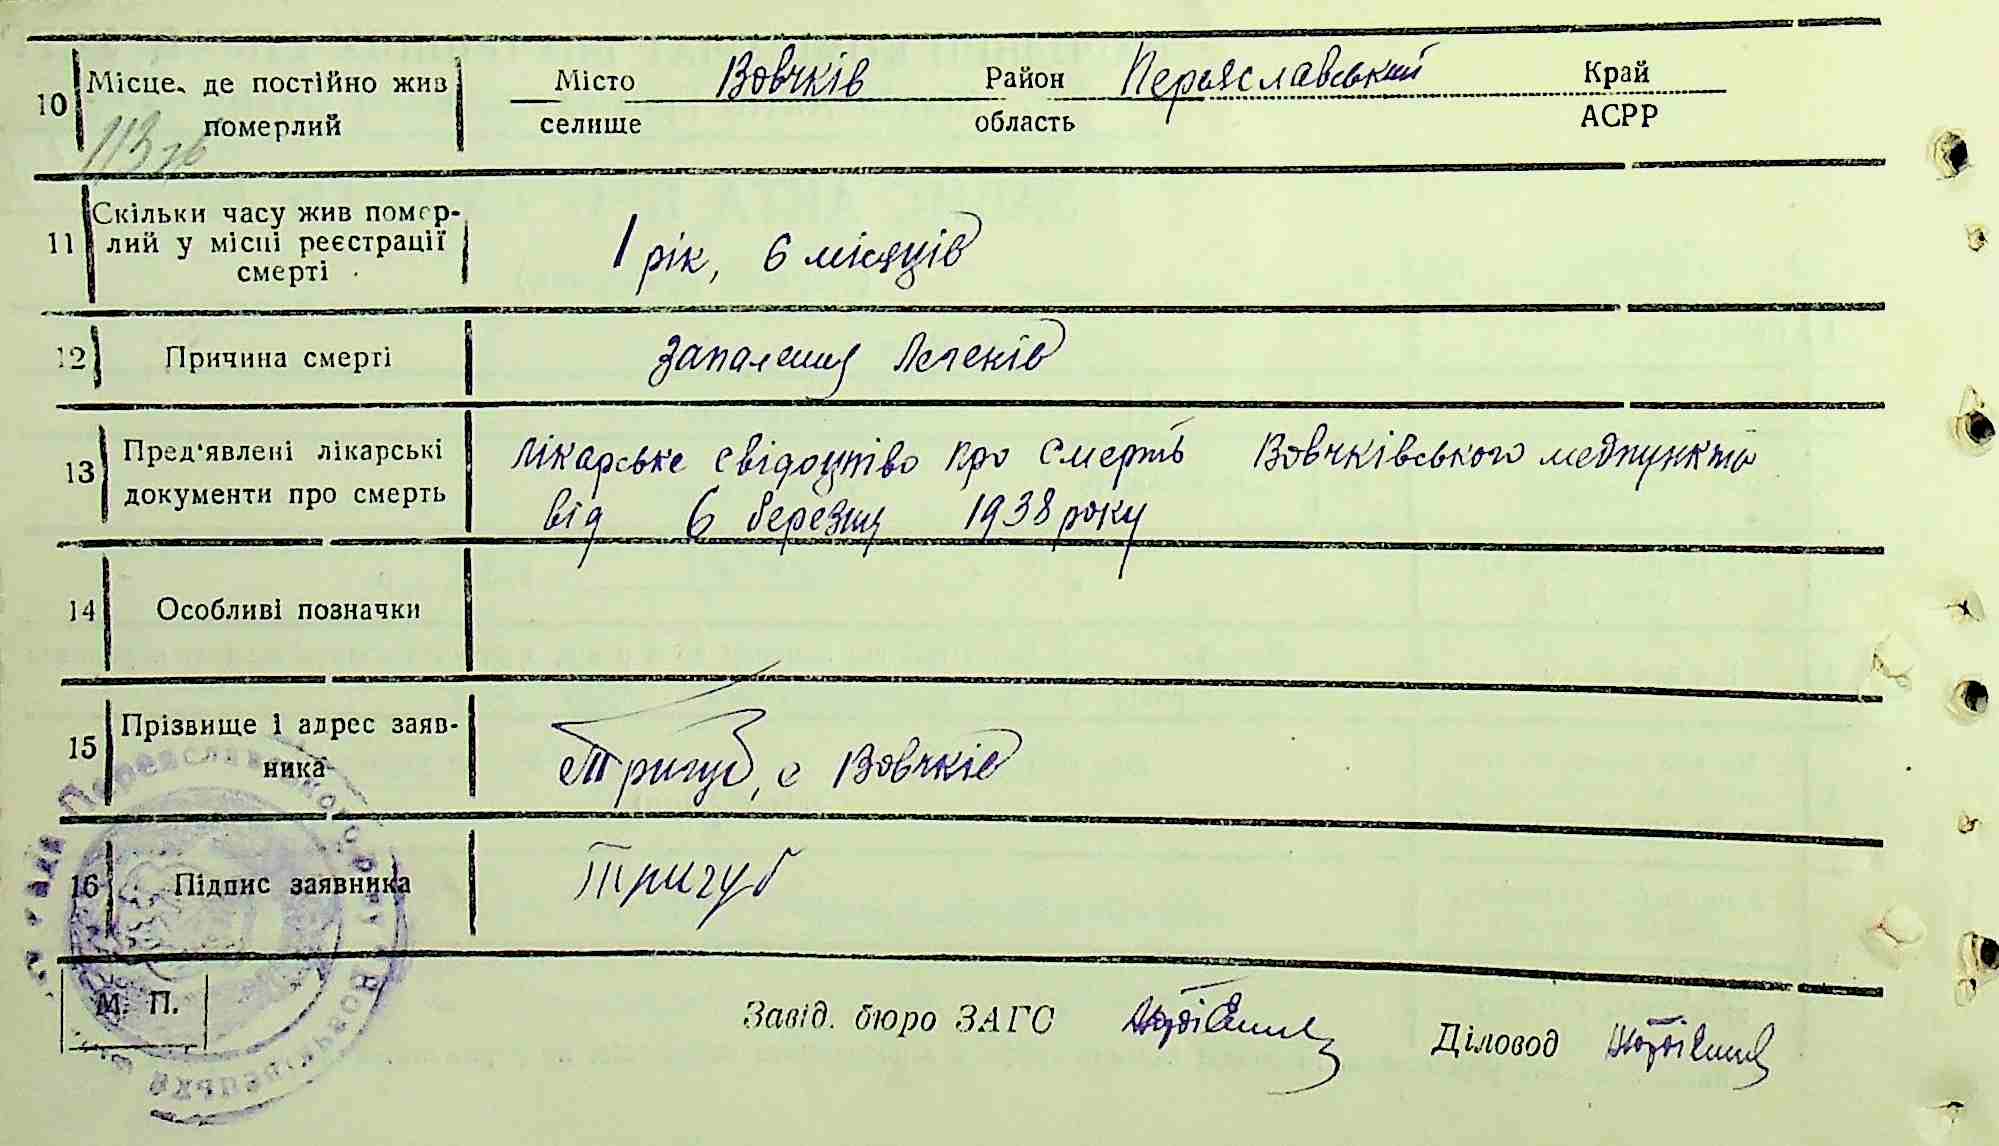 10 Місце, де постійно жив Місто Вовчків Район Переяславський Край
померлий селище область АСРР
113зв
11 Скільки часу жив помер-
лий у місці реєстрації
смерті
1 рік, 6 місяців
12 Причина смерті Запалення Легенів
13 Пред'явлені лікарські
документи про смерть
Лікарське свідоцтво про смерть Вовчківського медпункта
від 6 березня 1938 року
14 Особливі позначки
15 Прізвище і адрес заяв-
ника
Тригуб, с Вовчків
16 Підпис заявника Тригуб
М. П.
Завід. бюро ЗАГС Діловод
Переяславського